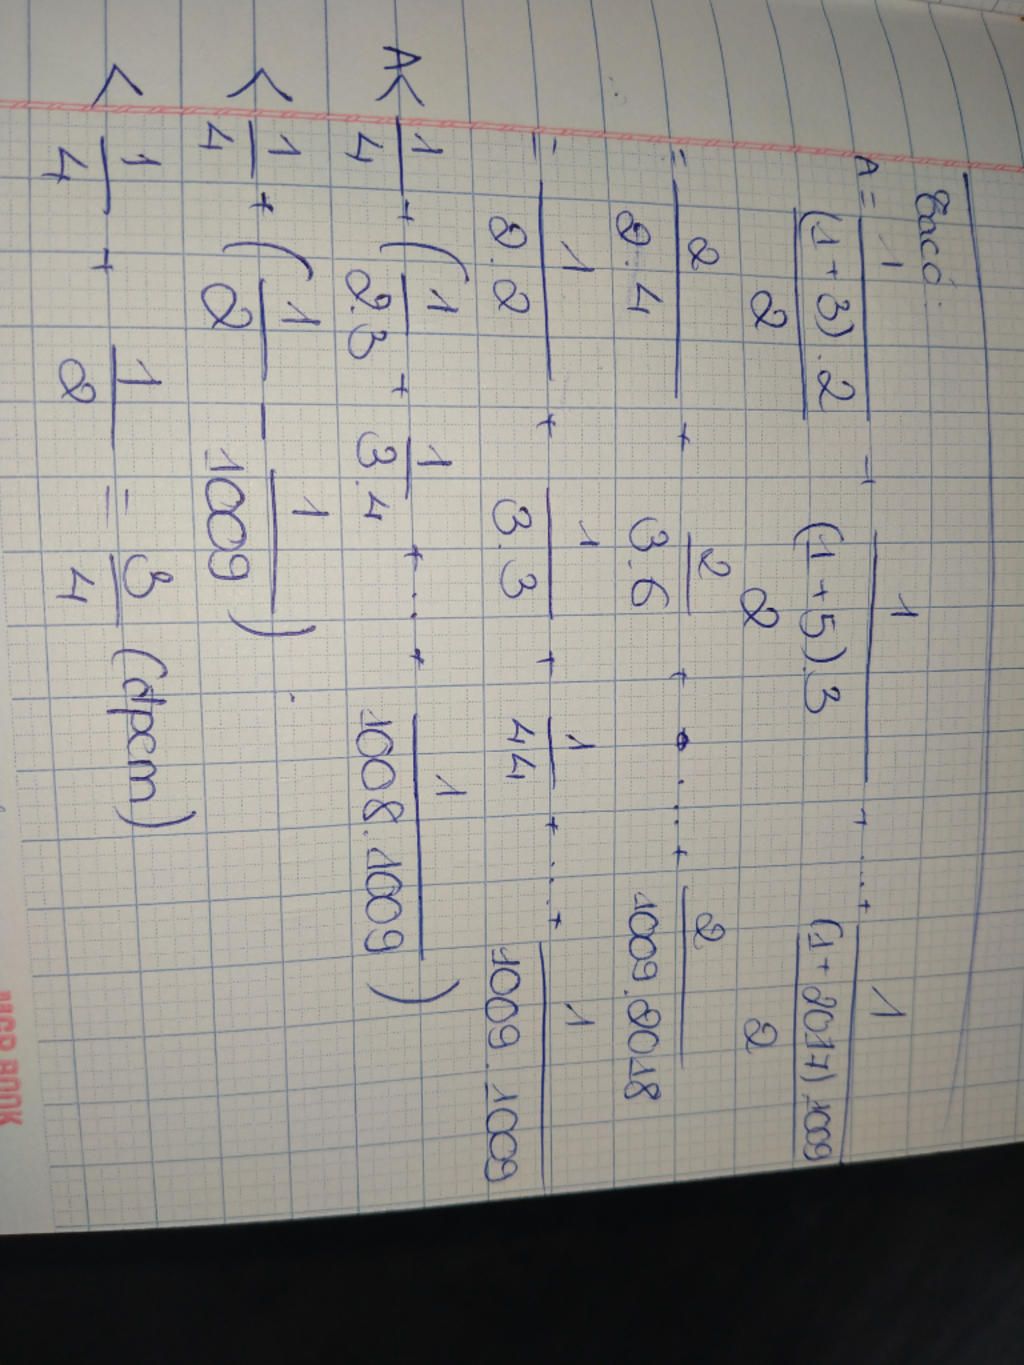 Ta có:
A = 1/((1+3).2/2) + 1/((1+5).3/2) + ... + 1/((1+2017).1009/2)
= 2/2.4 + 2/3.6 + ... + 2/1009.2018
= 1/2.2 + 1/3.3 + 1/4.4 + ... + 1/1009.1009
A < 1/4 + (1/2.3 + 1/3.4 + ... + 1/1008.1009)
< 1/4 + (1/2 - 1/1009).
< 1/4 + 1/2 = 3/4 (đpcm)